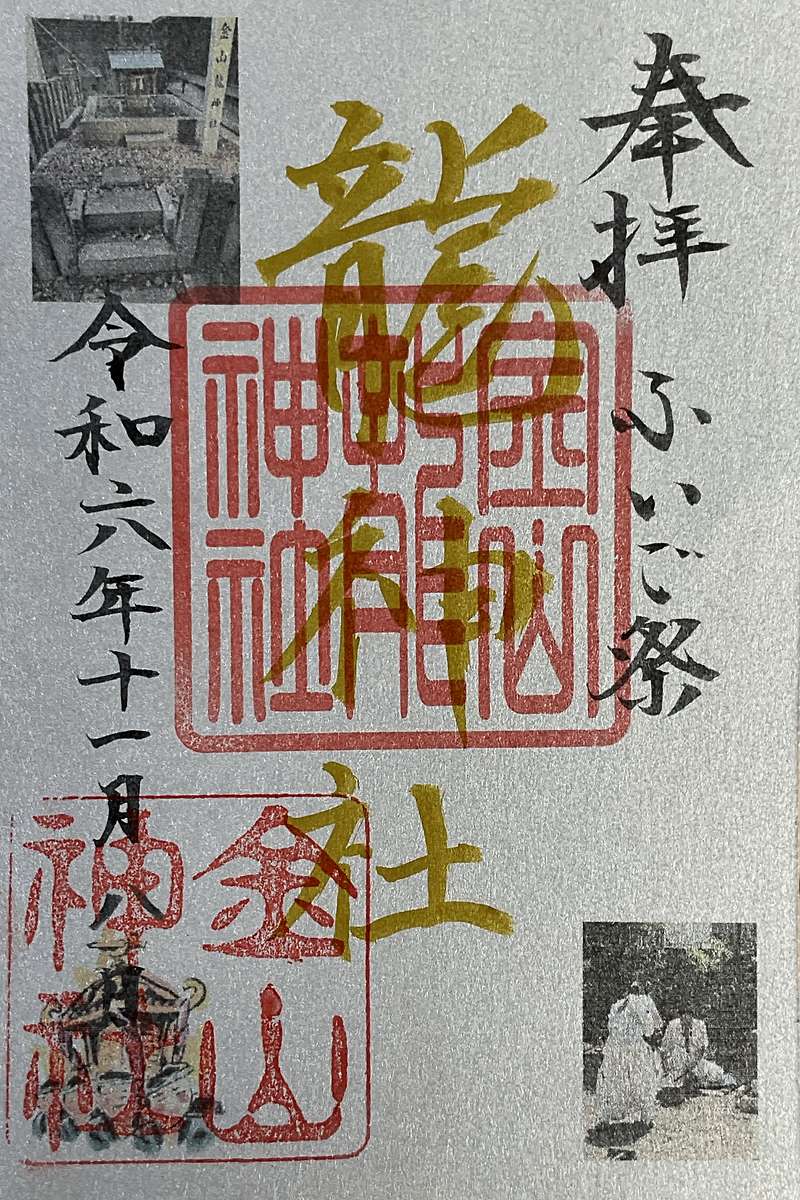 奉拝 ふいご祭
龍神社
金山龍神社
令和六年十一月八日
金山
神社
金山龍神社